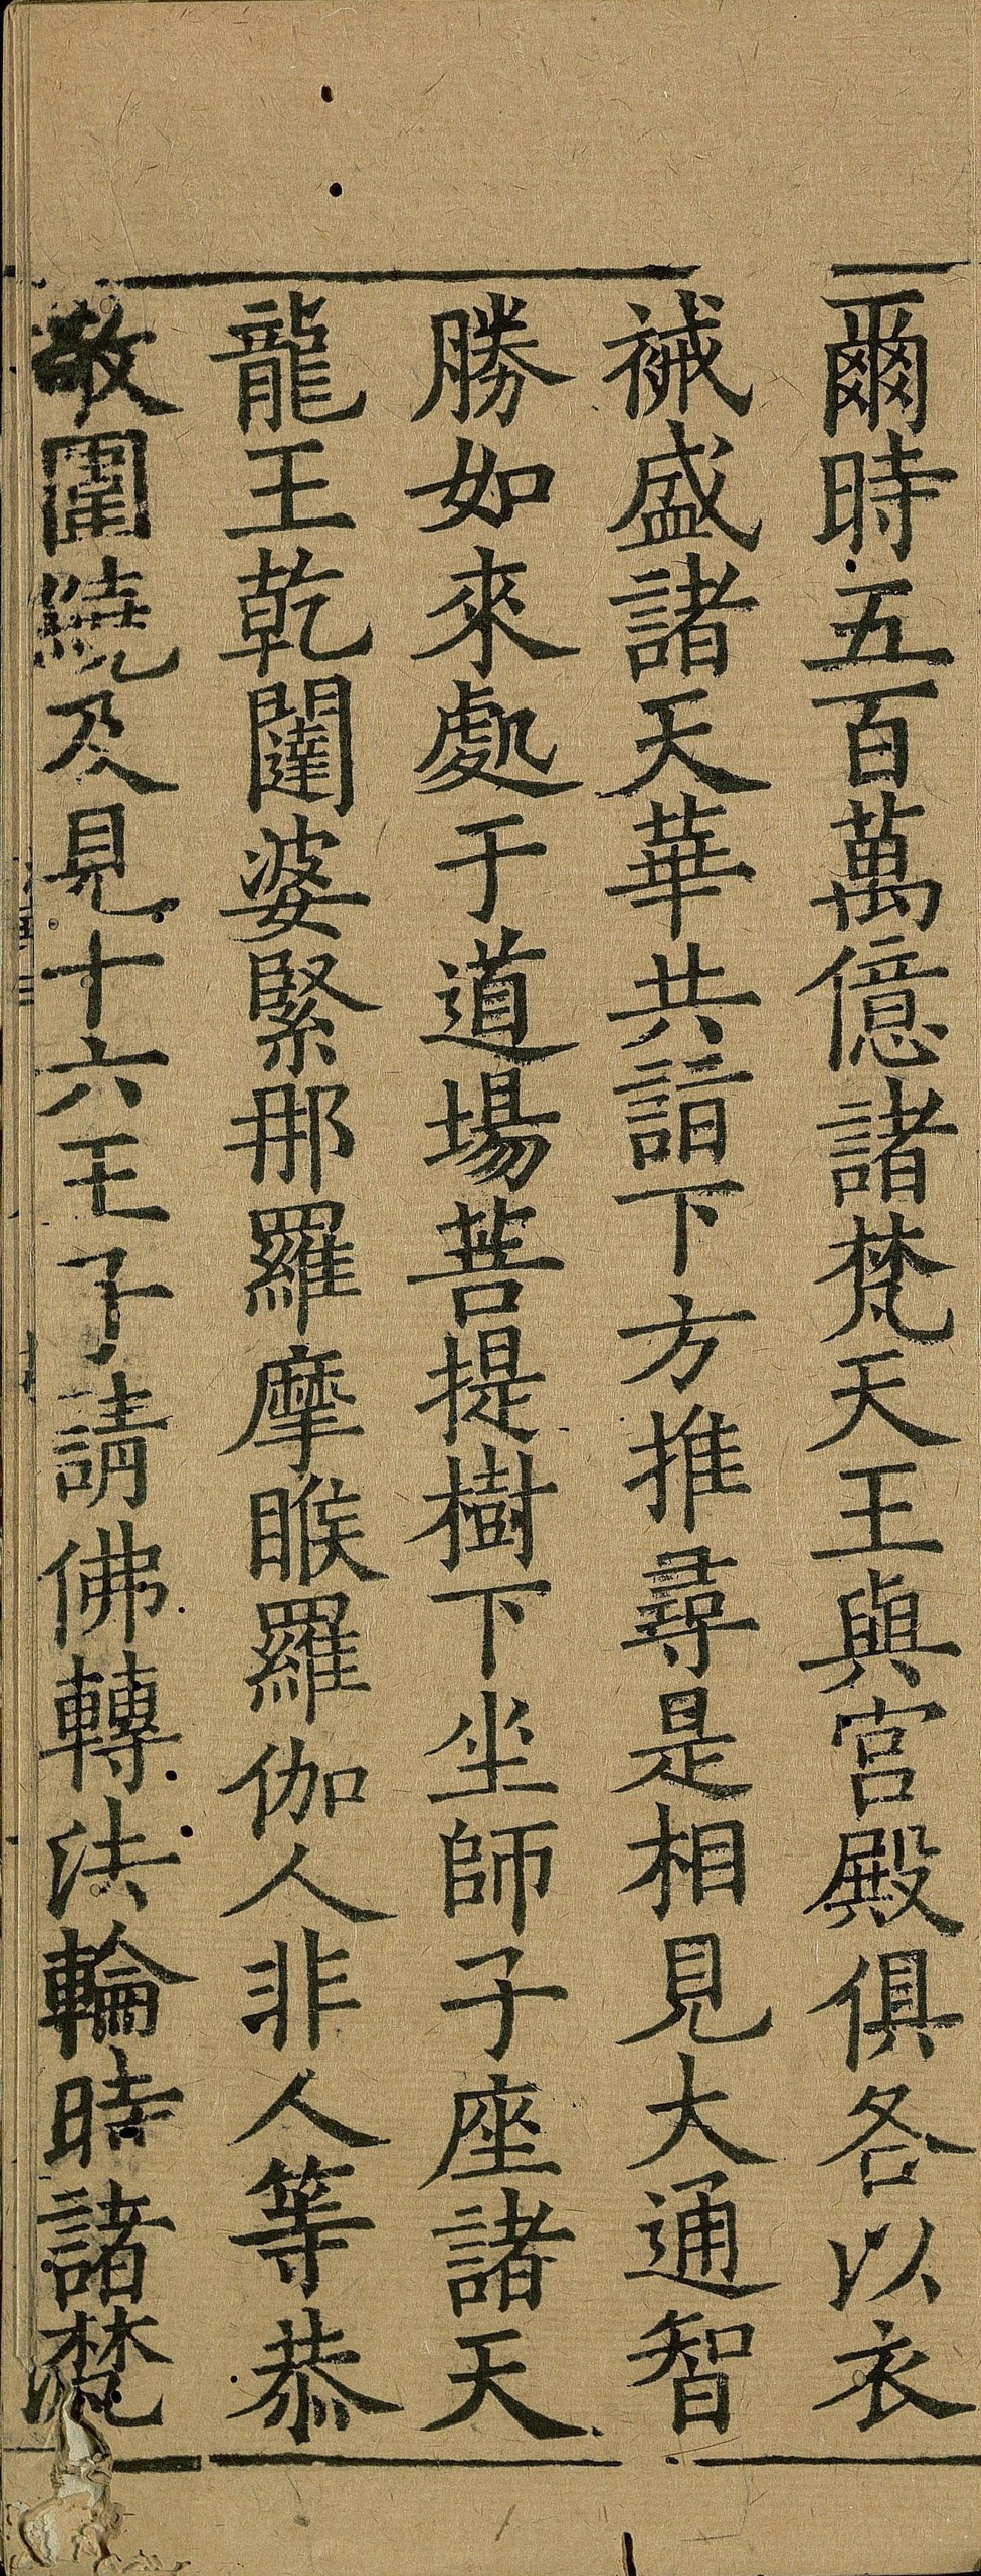 爾時五百萬億諸梵天王與宮殿俱各以衣
祴盛諸天華共詣下方推尋是相見大通智
勝如來處于道場菩提樹下坐師子座諸天
龍王乾闥婆緊那羅摩睺羅伽人非人等恭
敬圍繞及見十六王子請佛轉法輪時諸梵